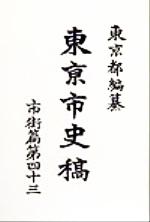 東京都編纂
東亰市史稿
市街篇第四十三